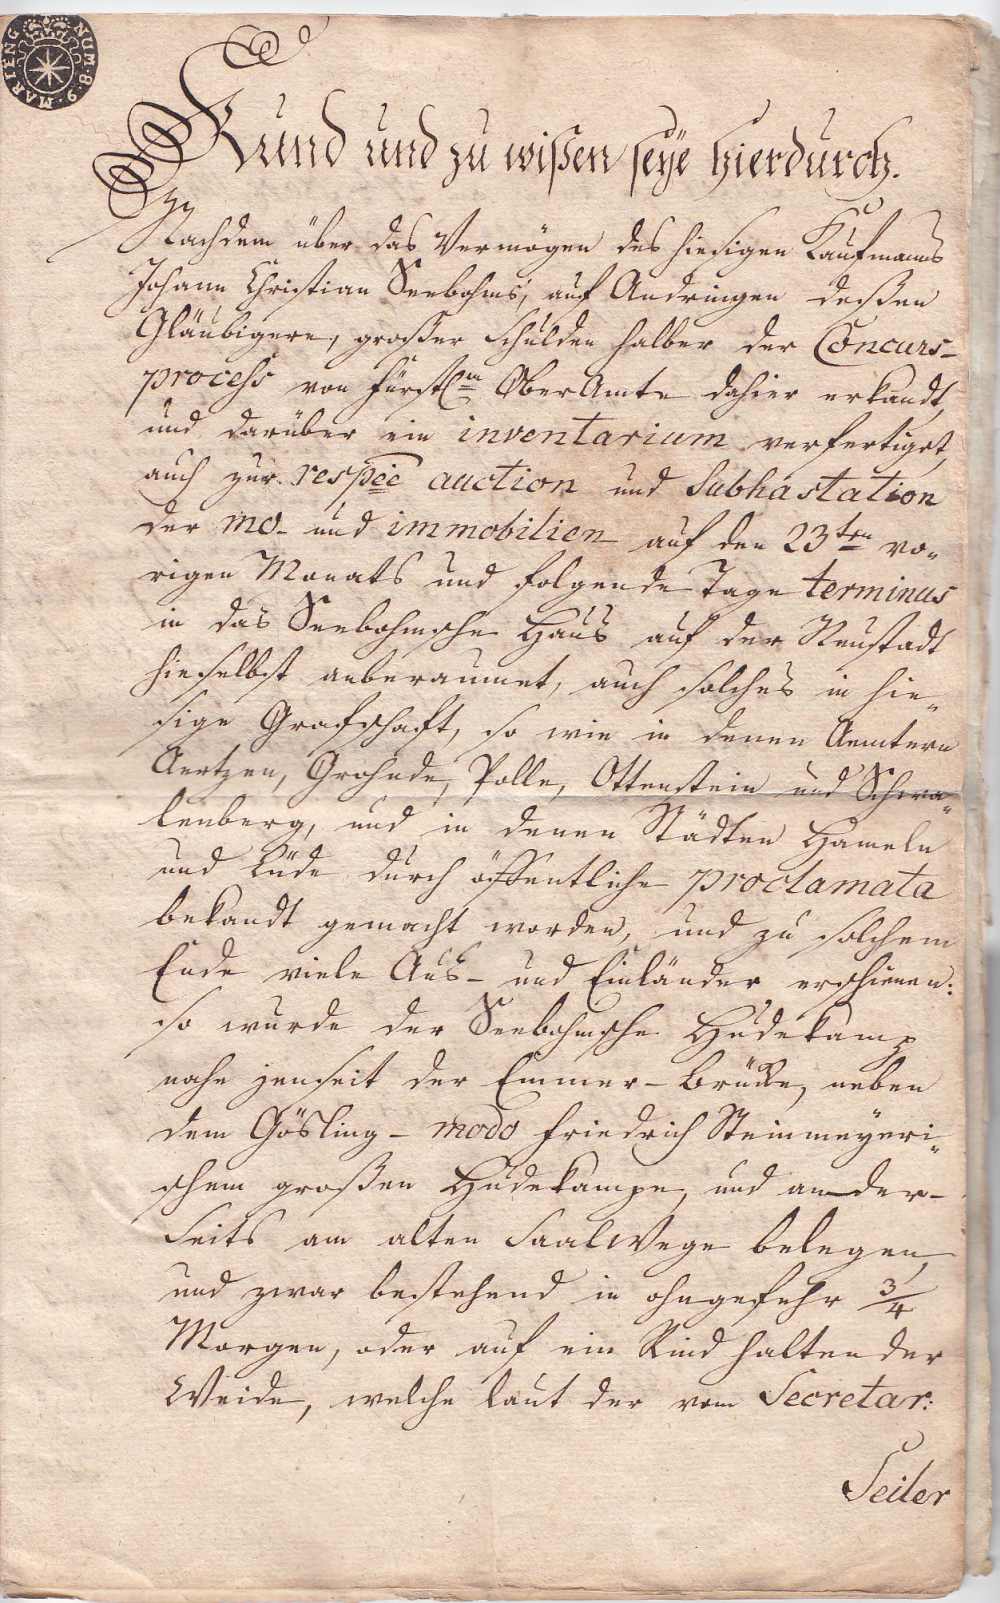 MARIENG NUM. 8. 9.
Kund und zu wißen seÿe hierdurch.
Nachdem über das Vermögen des hiesigen Kaufmanns
Johann Christian Seebohms, auf Andringen deßen
Gläubigere, großer Schulden halber der Concurs-
process von Fürstl.m OberAmte dahier erkandt,
und darüber ein inventarium verfertiget,
auch zur respée auction und Subhastation
der mo- und immobilien auf den 23ten vo-
rigen Monats und folgende Tage terminus
in das Seebohmsche Haus auf der Neustadt
hieselbst anberaumet, auch solches in hie-
sige Grafschaft, so wie in denen Aemtern
Aertzen, Grohnde, Polle, Ottenstein und Schwa-
lenberg, und in denen Städten Hameln
und Lüde durch öffentliche proclamata
bekandt gemacht worden, und zu solchem
Ende viele Aus- und Einländer erschienen:
so wurde der Seebohmsche Hudekamp
nahe jenseit der Emmer-Brücke, neben
dem Gösling- modo Friedrich Steinmeÿeri-
schem großen Hudekampe, und ander-
seits am alten Saalwege belegen,
und zwar bestehend in ohngefehr 3/4
Morgen, oder auf ein Rind haltender
Weide, welche laut der vom Secretar:
Seiler